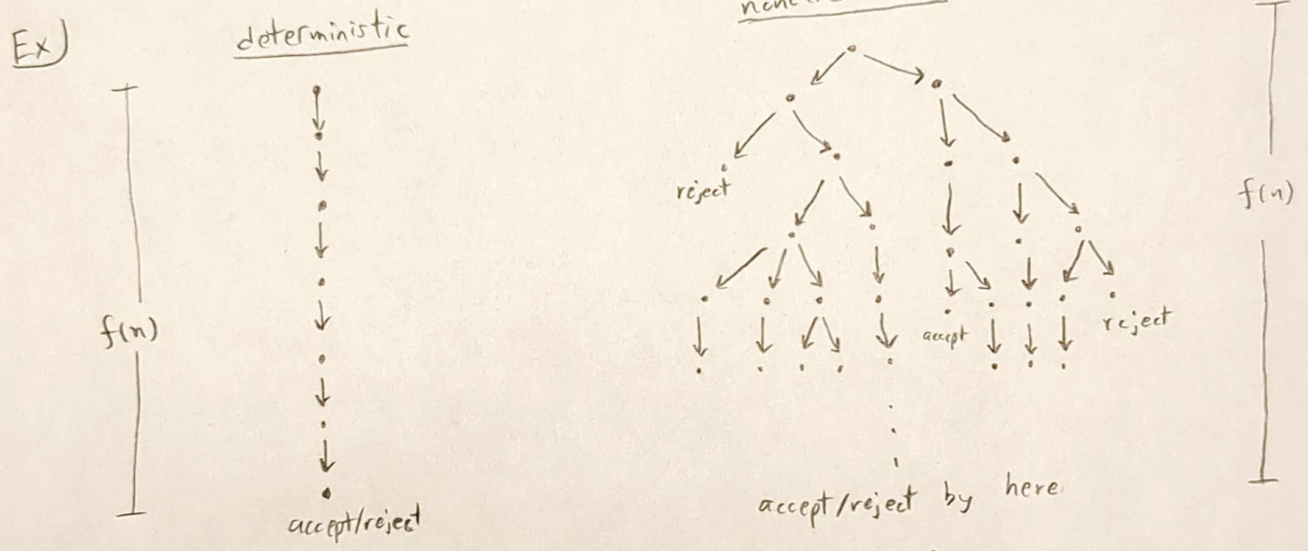 Ex)
deterministic
f(n)
accept/reject
reject
accept
reject
accept/reject by here
f(n)